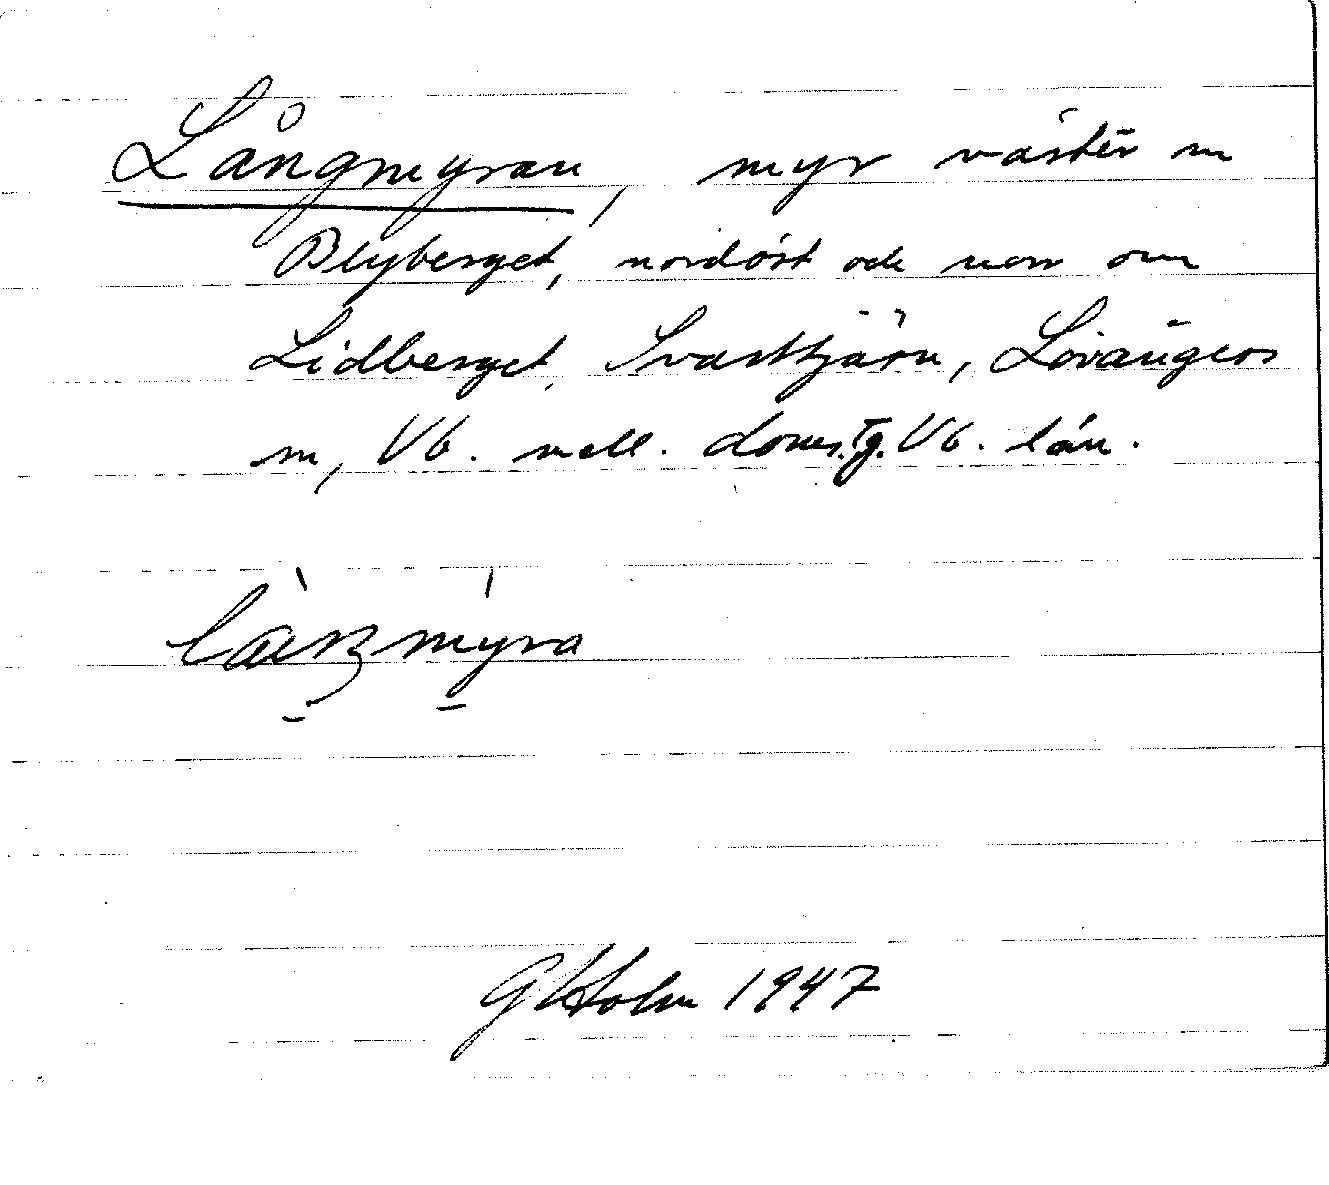 Långmyran, myr väster m
Blyberget, nordöst och norr om
Lidberget, Svarttjärn, Lövångers
m, Vb. mell. doms.tg. Vb. län.
G Holm 1947